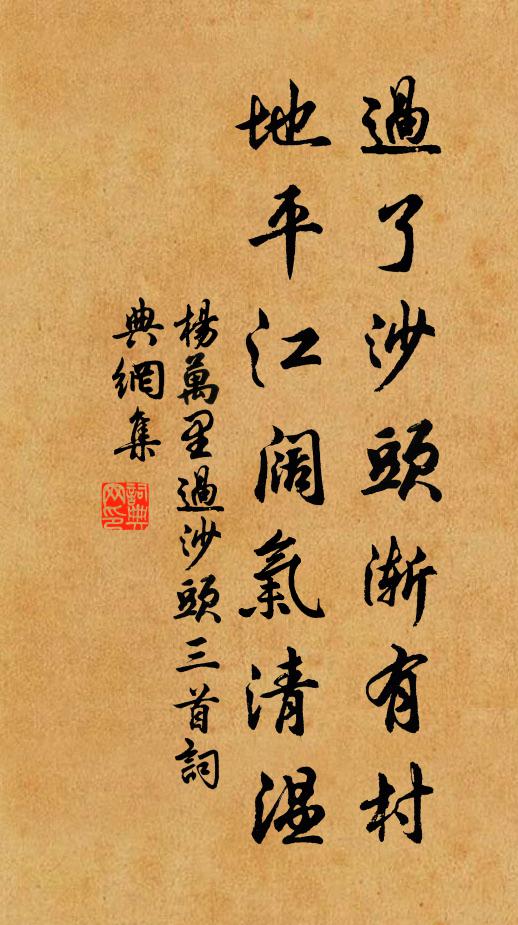 過了沙頭漸有村
地平江闊氣清溫
楊萬里過沙頭三首詞
典網集
詞典網印